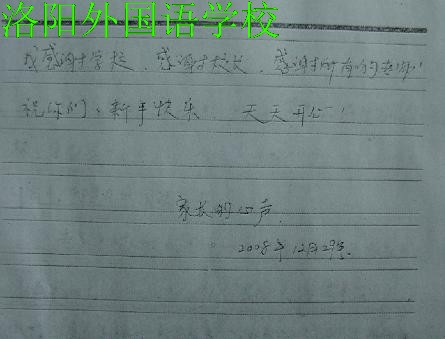 洛阳外国语学校
我感谢学校、感谢校长、感谢所有的老师！
祝你们：新年快乐 天天开心！
家长的心声
2008年12月29号.